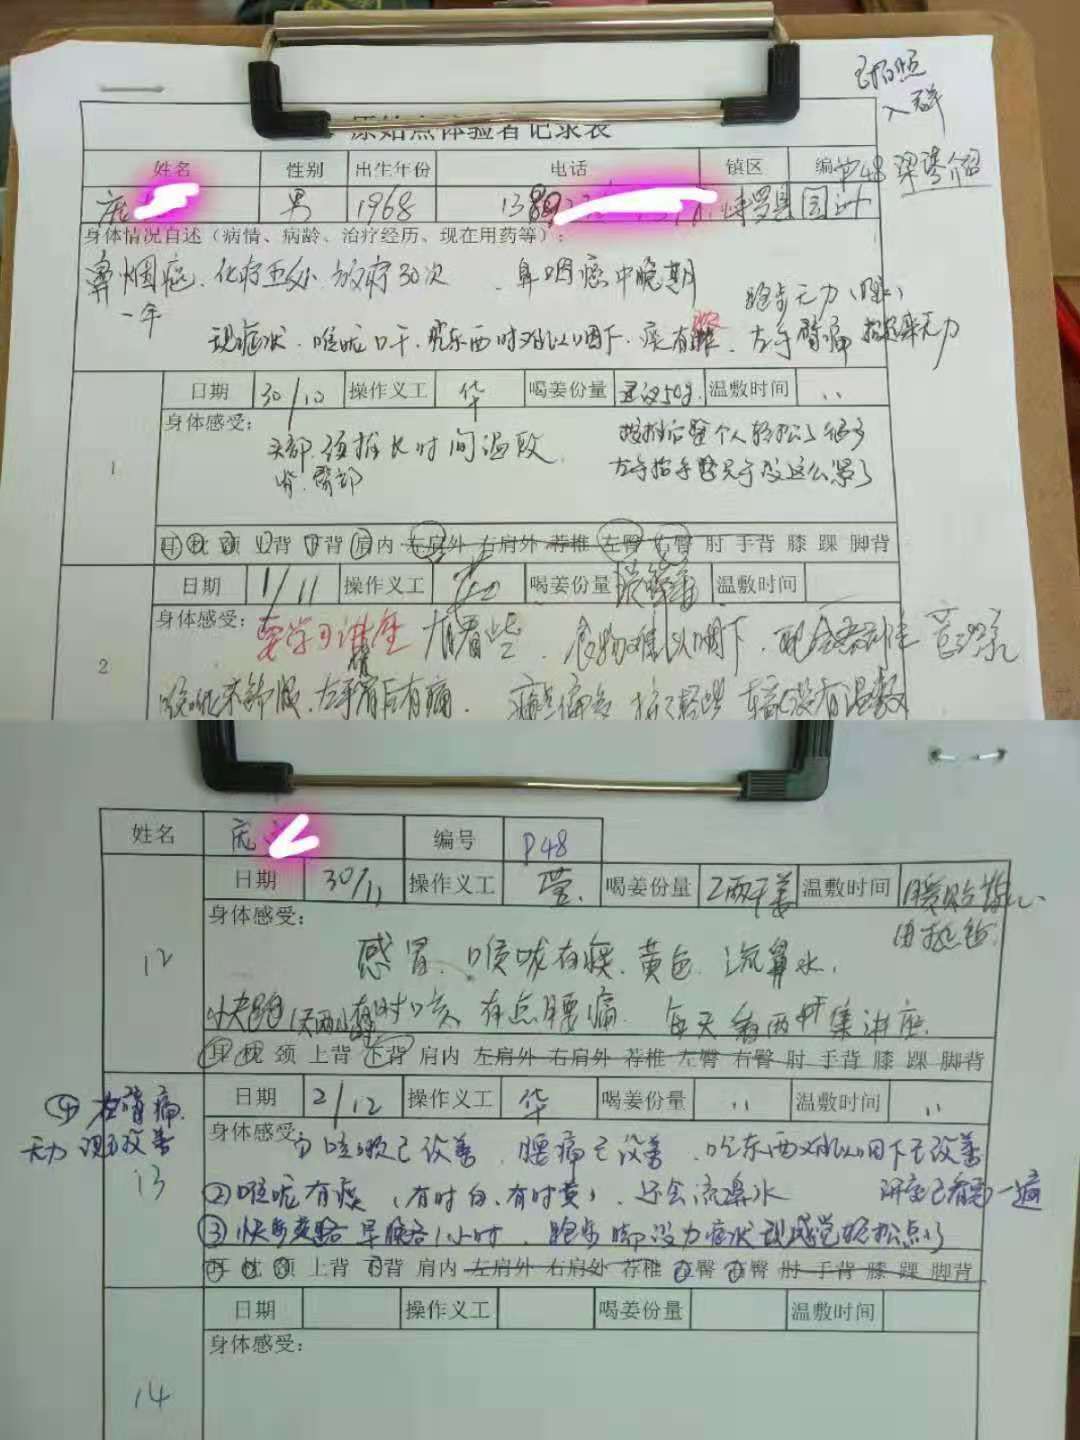 已拍照
入群
原始点体验者记录表
姓名 性别 出生年份 电话 镇区 编 P48 介绍
庞 男 1968 138 博罗县园洲
身体情况自述（病情、病龄、治疗经历、现在用药等）：
鼻咽癌、化疗五次、放疗30次 、鼻咽癌中晚期
一年 跑步无力（腿）
现症状、喉咙口干、吃东西时难以咽下、痰有 、左手臂痛 抬起来无力
日期 30/10 操作义工 华 喝姜份量 50g 温敷时间 、、
1
身体感受：
头部、颈椎长时间温敷 按推后整个人轻松了很多
背、臀部 左手抬手臂只于没这么累了
耳 枕 颈 上背 下背 肩内 左肩外 右肩外 荐椎 左臀 右臀 肘 手背 膝 踝 脚背
日期 1/11 操作义工 喝姜份量 温敷时间
2
身体感受：要学习讲座 有看些、食物难以咽下、
喉咙不舒服、左手臂后有痛、 没有温敷
姓名 庞 编号 P48
日期 30/11 操作义工 喝姜份量 2两干姜 温敷时间 暖贴
12
身体感受：
感冒、喉咙有痰、黄色、流鼻水、
快跑 1天两小时 有时咳 有点腰痛 每天看两 集讲座
耳 枕 颈 上背 下背 肩内 左肩外 右肩外 荐椎 左臀 右臀 肘 手背 膝 踝 脚背
日期 2/12 操作义工 华 喝姜份量 、、 温敷时间 、、
④ 左臂痛、
无力 现改善
13
身体感受：①咳嗽已改善、腰痛已改善、吃东西难以咽下已改善
②喉咙有痰（有时白、有时黄）、还会流鼻水 讲座已看 一遍
③快步走路 早晚各1小时、跑步脚没力症状现感觉轻松点了
耳 枕 颈 上背 下背 肩内 左肩外 右肩外 荐椎 左臀 右臀 肘 手背 膝 踝 脚背
日期 操作义工 喝姜份量 温敷时间
14
身体感受：